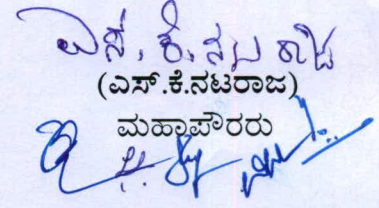 ಎಸ್. ಕೆ. ನಟರಾಜ
(ಎಸ್.ಕೆ.ನಟರಾಜ)
ಮಹಾಪೌರರು